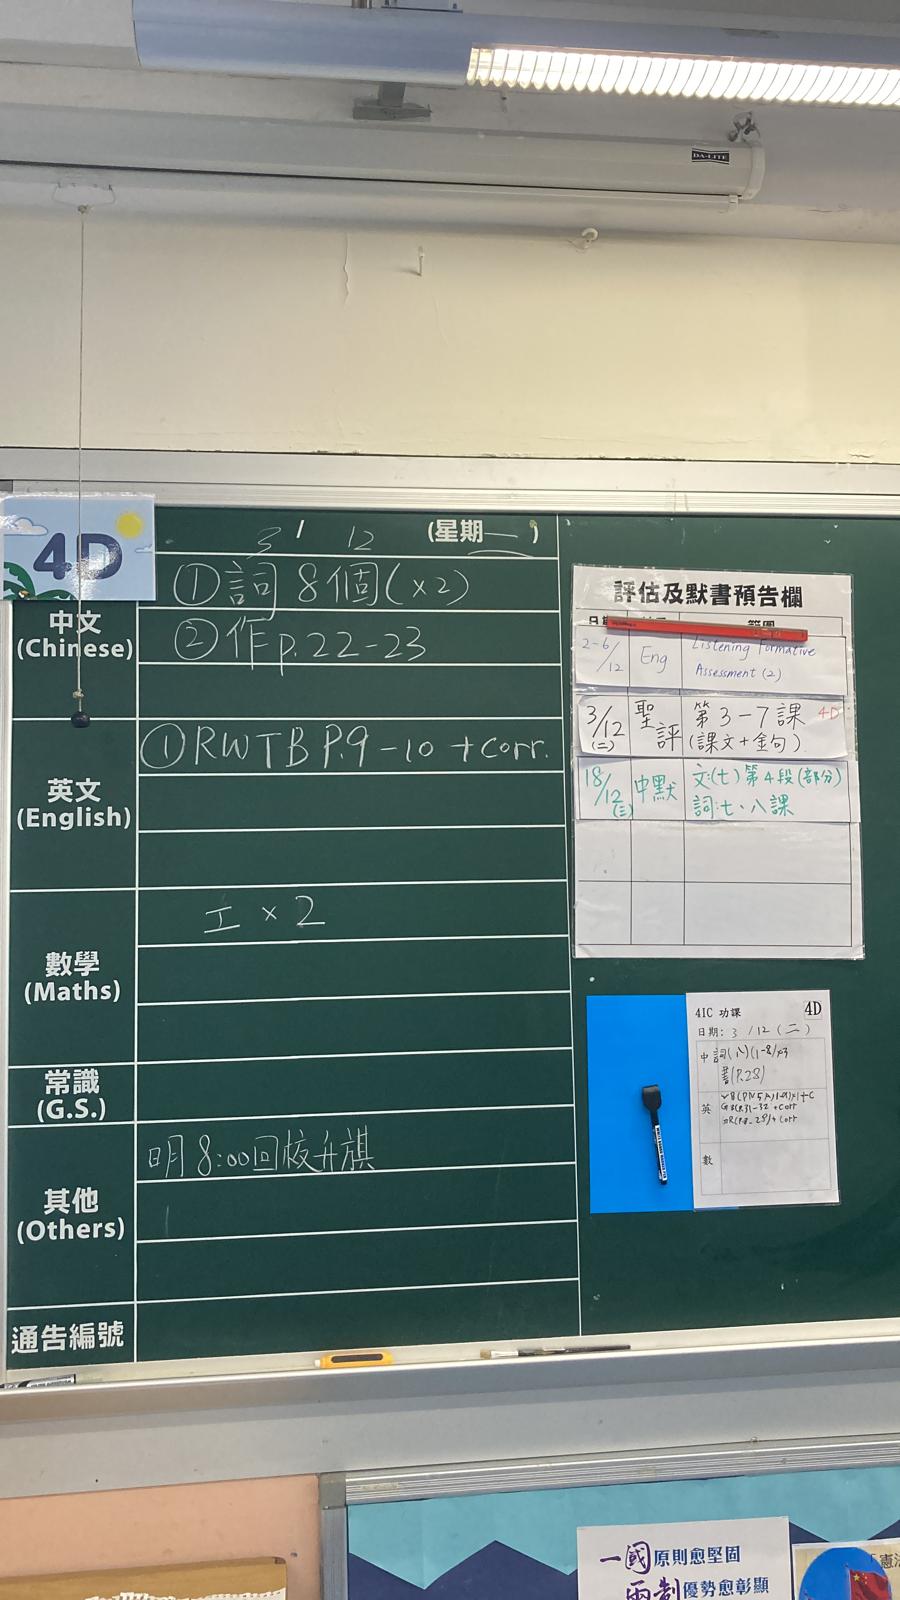 DA-LITE
4D
3 / 12 (星期二)
中文
(Chinese)
①詞8個(×2)
②作P.22-23
英文
(English)
①RWTB P.9-10 +corr.
數學
(Maths)
工×2
常識
(G.S.)
其他
(Others)
明8:00回校升旗
通告編號
評估及默書預告欄
2-6/12 Eng Listening Formative
Assessment (2)
3/12 (二) 聖評 第3-7課 4D
(課文+金句)
18/12 (三) 中默 文:(七)第4段(部分)
詞:七、八課
4IC 功課 4D
日期: 3 /12 (二)
中 詞(八)(1-8)×3
書(P.28)
英
數
一國原則愈堅固
兩制優勢愈彰顯